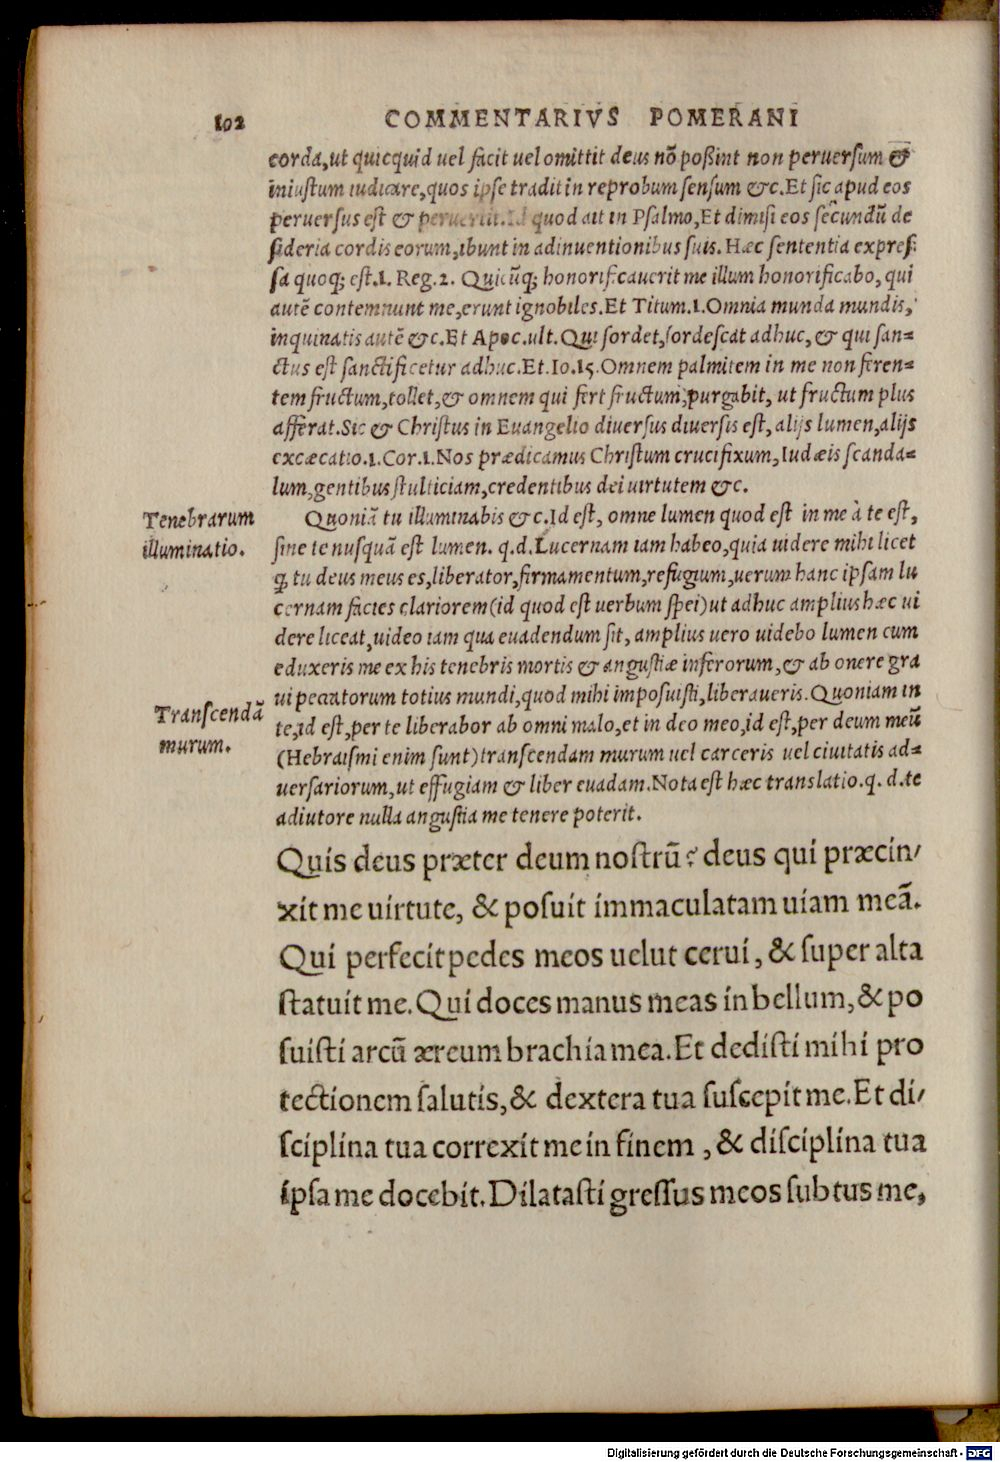 102
COMMENTARIVS POMERANI
corda,ut quicquid uel facit uel omittit deus nō poßint non peruersum &
iniustum iudicare,quos ipse tradit in reprobum sensum &c.Et sic apud eos
peruersus est & peruertit.Id quod ait in Psalmo,Et dimisi eos secundū de
sideria cordis eorum,ibunt in adinuentionibus suis. Hæc sententia expres/
sa quoq; est.1. Reg.2. Quicūq; honorificauerit me illum honorificabo, qui
autē contemnunt me,erunt ignobiles.Et Titum.1.Omnia munda mundis,
inquinatis autē &c.Et Apoc.ult.Qui sordet,sordescat adhuc,& qui san=
ctus est sanctificetur adhuc.Et.Io.15.Omnem palmitem in me non feren=
tem fructum,tollet,& omnem qui fert fructum,purgabit, ut fructum plus
afferat.Sic & Christus in Euangelio diuersus diuersis est, alijs lumen,alijs
excæcatio.1.Cor.1.Nos prædicamus Christum crucifixum,Iudæis scanda=
lum,gentibus stulticiam,credentibus dei uirtutem &c.
Tenebrarum
illuminatio.
Quoniā tu illuminabis &c.Id est, omne lumen quod est in me à te est,
sine te nusquā est lumen. q.d.Lucernam iam habeo,quia uidere mihi licet
q̃ tu deus meus es,liberator,firmamentum,refugium,uerum hanc ipsam lu
cernam facies clariorem(id quod est uerbum spei)ut adhuc amplius hæc ui
dere liceat,uideo iam qua euadendum sit, amplius uero uidebo lumen cum
eduxeris me ex his tenebris mortis & angustiæ inferorum,& ab onere gra
ui peccatorum totius mundi,quod mihi imposuisti,liberaueris.Quoniam in
Transcendā
murum.
te,id est,per te liberabor ab omni malo,et in deo meo,id est,per deum meū
(Hebraismi enim sunt)transcendam murum uel carceris uel ciuitatis ad=
uersariorum,ut effugiam & liber euadam.Nota est hæc translatio.q.d.te
adiutore nulla angustia me tenere poterit.
Quis deus præter deum nostrū? deus qui præcin/
xit me uirtute, & posuit immaculatam uiam meā.
Qui perfecit pedes meos uelut cerui, & super alta
statuit me.Qui doces manus meas in bellum,& po
suisti arcū æreum brachia mea.Et dedisti mihi pro
tectionem salutis,& dextera tua suscepit me.Et di/
sciplina tua correxit me in finem , & disciplina tua
ipsa me docebit.Dilatasti gressus meos subtus me,
Digitalisierung gefördert durch die Deutsche Forschungsgemeinschaft - DFG